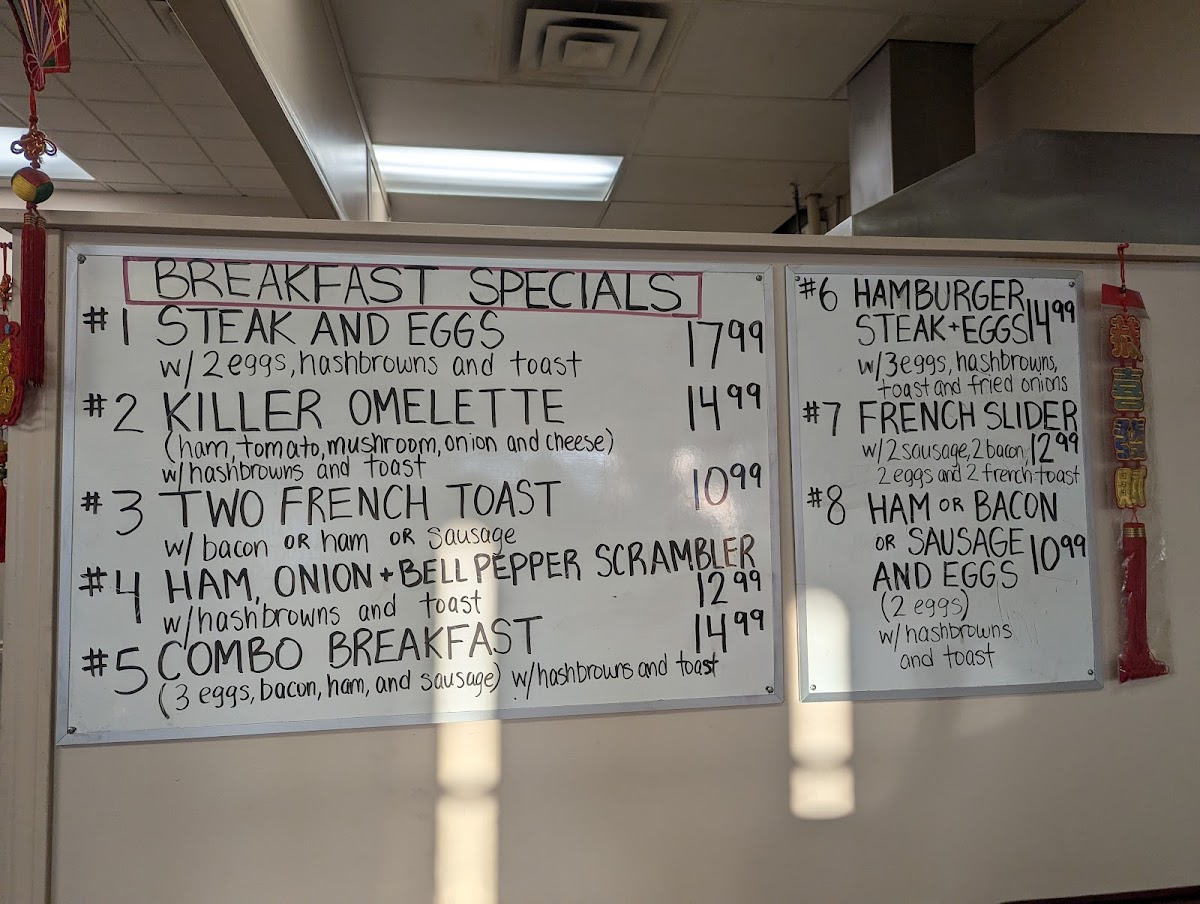 BREAKFAST SPECIALS
#1 STEAK AND EGGS 17⁹⁹
w/2 eggs, hashbrowns and toast
#2 KILLER OMELETTE 14⁹⁹
(ham, tomato, mushroom, onion and cheese)
w/hashbrowns and toast
#3 TWO FRENCH TOAST 10⁹⁹
w/ bacon OR ham OR sausage
#4 HAM, ONION + BELL PEPPER SCRAMBLER
w/hashbrowns and toast 12⁹⁹
#5 COMBO BREAKFAST 14⁹⁹
(3 eggs, bacon, ham, and sausage) w/hashbrowns and toast
#6 HAMBURGER
STEAK + EGGS 14⁹⁹
w/3 eggs, hashbrowns,
toast and fried onions
#7 FRENCH SLIDER
w/2 sausage, 2 bacon, 12⁹⁹
2 eggs and 2 french toast
#8 HAM OR BACON
OR SAUSAGE 10⁹⁹
AND EGGS
(2 eggs)
w/hashbrowns
and toast
恭
喜
發
財